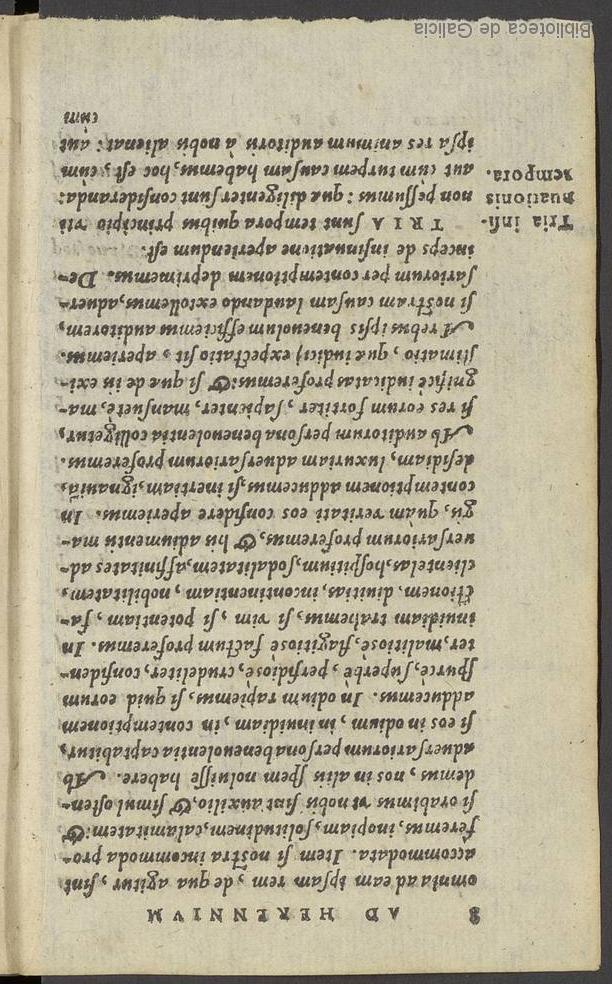 8 AD HERENNIVM
omnia ad eam ipsam rem, de qua agitur, sint
accommodata. Item si nostra incommoda pro-
feremus, inopiam, solitudinem, calamitatem: &
si orabimus vt nobis sint auxilio, & simul osten-
demus, nos in aliis spem noluisse habere. Ab
aduersariorum persona beneuolentia captabitur,
si eos in odium, in inuidiam, in contemptionem
adducemus. In odium rapiemus, si quid eorum
spurcè, superbè, perfidiosè, crudeliter, confiden-
ter, malitiosè, flagitiosè factum proferemus. In
inuidiam trahemus, si vim, si potentiam, fa-
ctionem, diuitias, incontinentiam, nobilitatem,
clientelas, hospitium, sodalitatem, affinitates ad-
uersariorum proferemus, & his adiumentis ma-
gis, quàm veritati eos confidere aperiemus. In
contemptionem adducemus, si inertiam, ignauia,
desidiam, luxuriam aduersariorum proferemus.
Ab auditorum persona beneuolentia colligetur,
si res eorum fortiter, sapienter, mansuetè, ma-
gnificè iudicatas proferemus: & si quæ de iis exi-
stimatio, quæ iudicij expectatio sit, aperiemus.
A rebus ipsis beneuolum efficiemus auditorem,
si nostram causam laudando extollemus, aduer-
sariorum per contemptionem deprimemus. De-
inceps de insinuatione aperiendum est.
TRIA sunt tempora quibus principio vti
non possumus: quæ diligenter sunt consideranda:
aut cùm turpem causam habemus, hoc est, cùm
ipsa res animum auditoris à nobis alienat: aut
cùm
Tria insi-
nuationis
tempora.
Biblioteca de Galicia